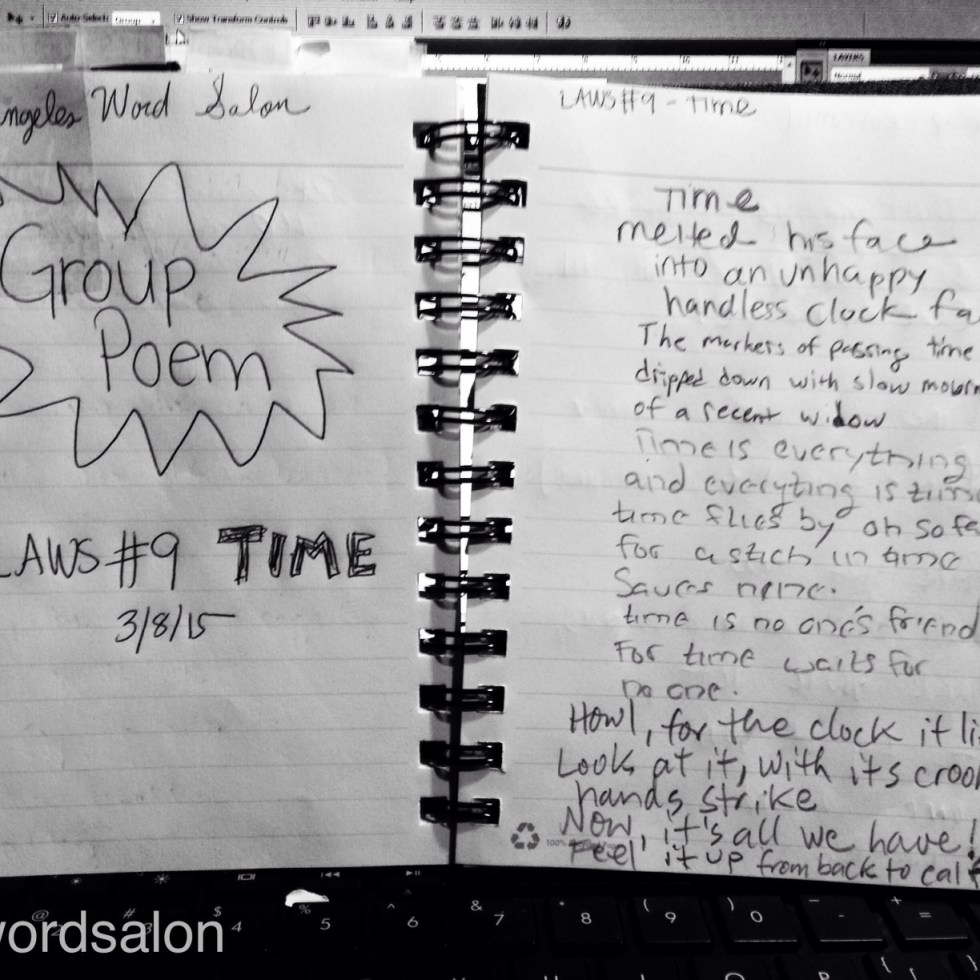 Auto-Select: Group Show Transform Controls
LAYERS
Normal
ngeles Word Salon
Group
Poem
LAWS #9 TIME
3/8/15
LAWS #9 - Time
Time
melted his face
into an unhappy
handless clock fa
The markers of passing time
dripped down with slow mourn
of a recent widow
Time is everything
and everyting is time
time flies by oh so fa
for a stich in time
Saves nine.
time is no one's friend
For time waits for
no one.
Howl, for the clock it li
Look at it, with its crook
hands strike
Now, it's all we have!
Feel it up from back to calf
100%
@ # $ % ^ & * ( ) - + =
4 5 6 7 8 9 0
wordsalon